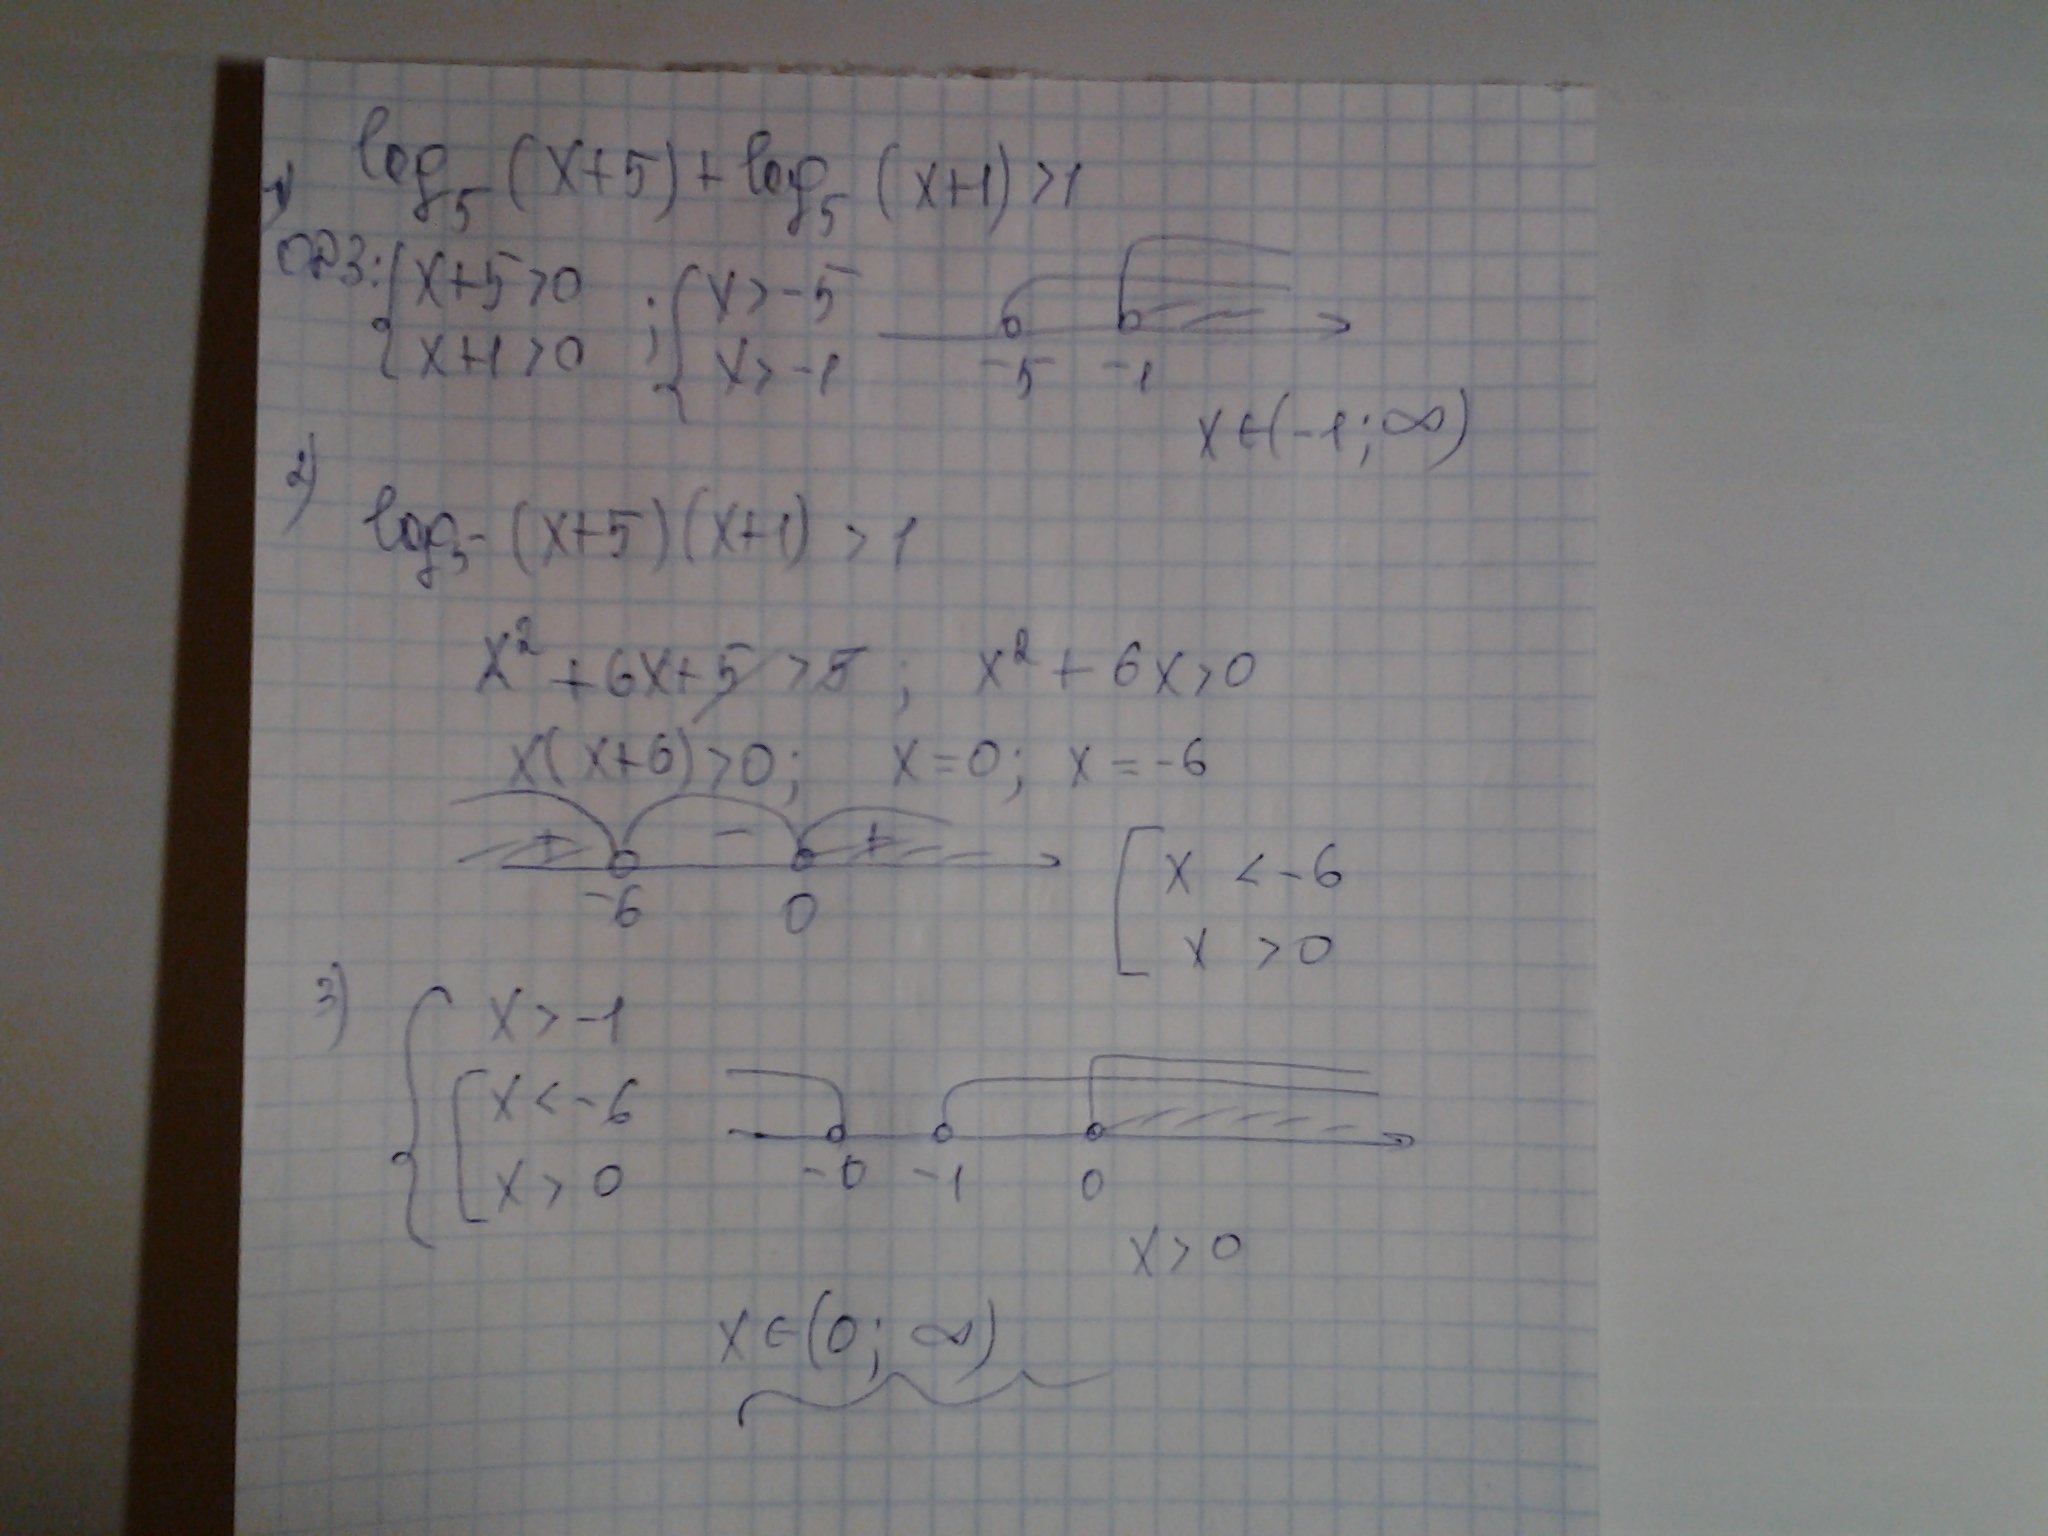 1) log₅(x+5)+log₅(x+1)>1
ОДЗ: { x+5>0 ; { x>-5
x+1>0 x>-1
-5 -1
x∈(-1;∞)
2)
log₅(x+5)(x+1)>1
x²+6x+5>5; x²+6x>0
x(x+6)>0; x=0; x=-6
+ - +
-6 0
[ x<-6
x>0
3) { x>-1
[ x<-6
x>0
-6 -1 0
x>0
x∈(0;∞)